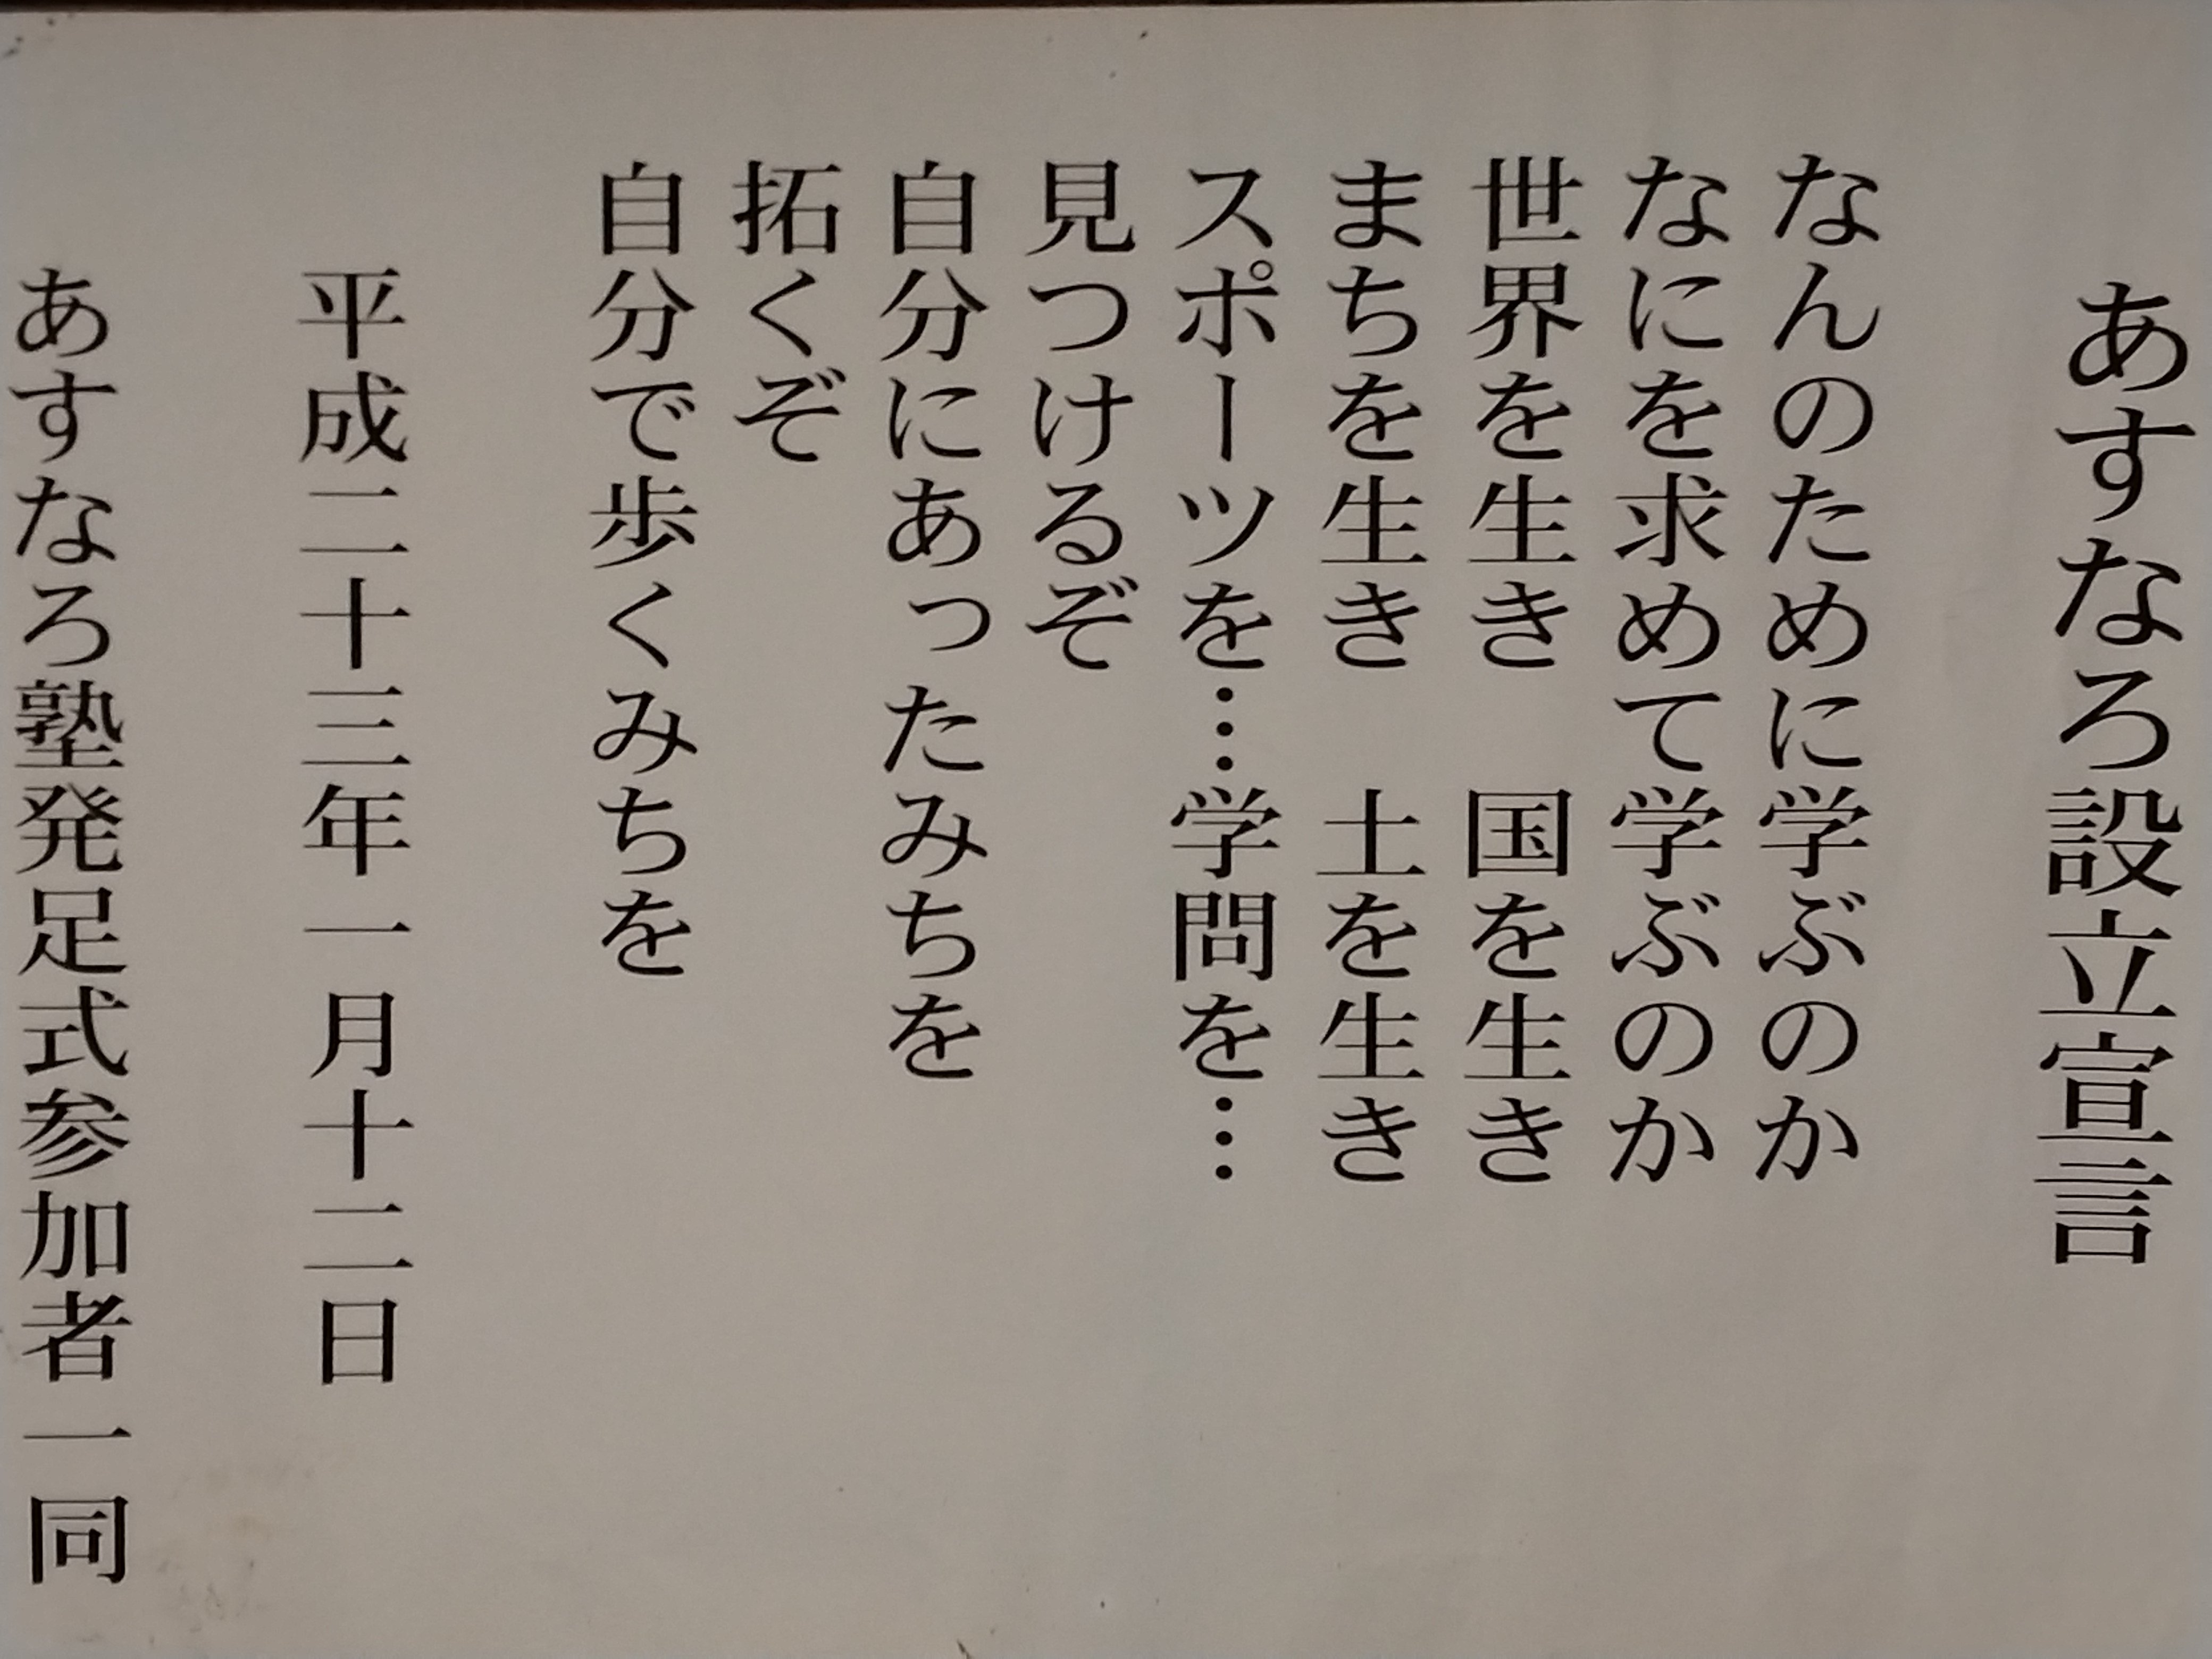 あすなろ設立宣言
なんのために学ぶのか
なにを求めて学ぶのか
世界を生き　国を生き
まちを生き　土を生き
スポーツを…学問を…
見つけるぞ
自分にあったみちを
拓くぞ
自分で歩くみちを
平成二十三年一月十二日
あすなろ塾発足式参加者一同